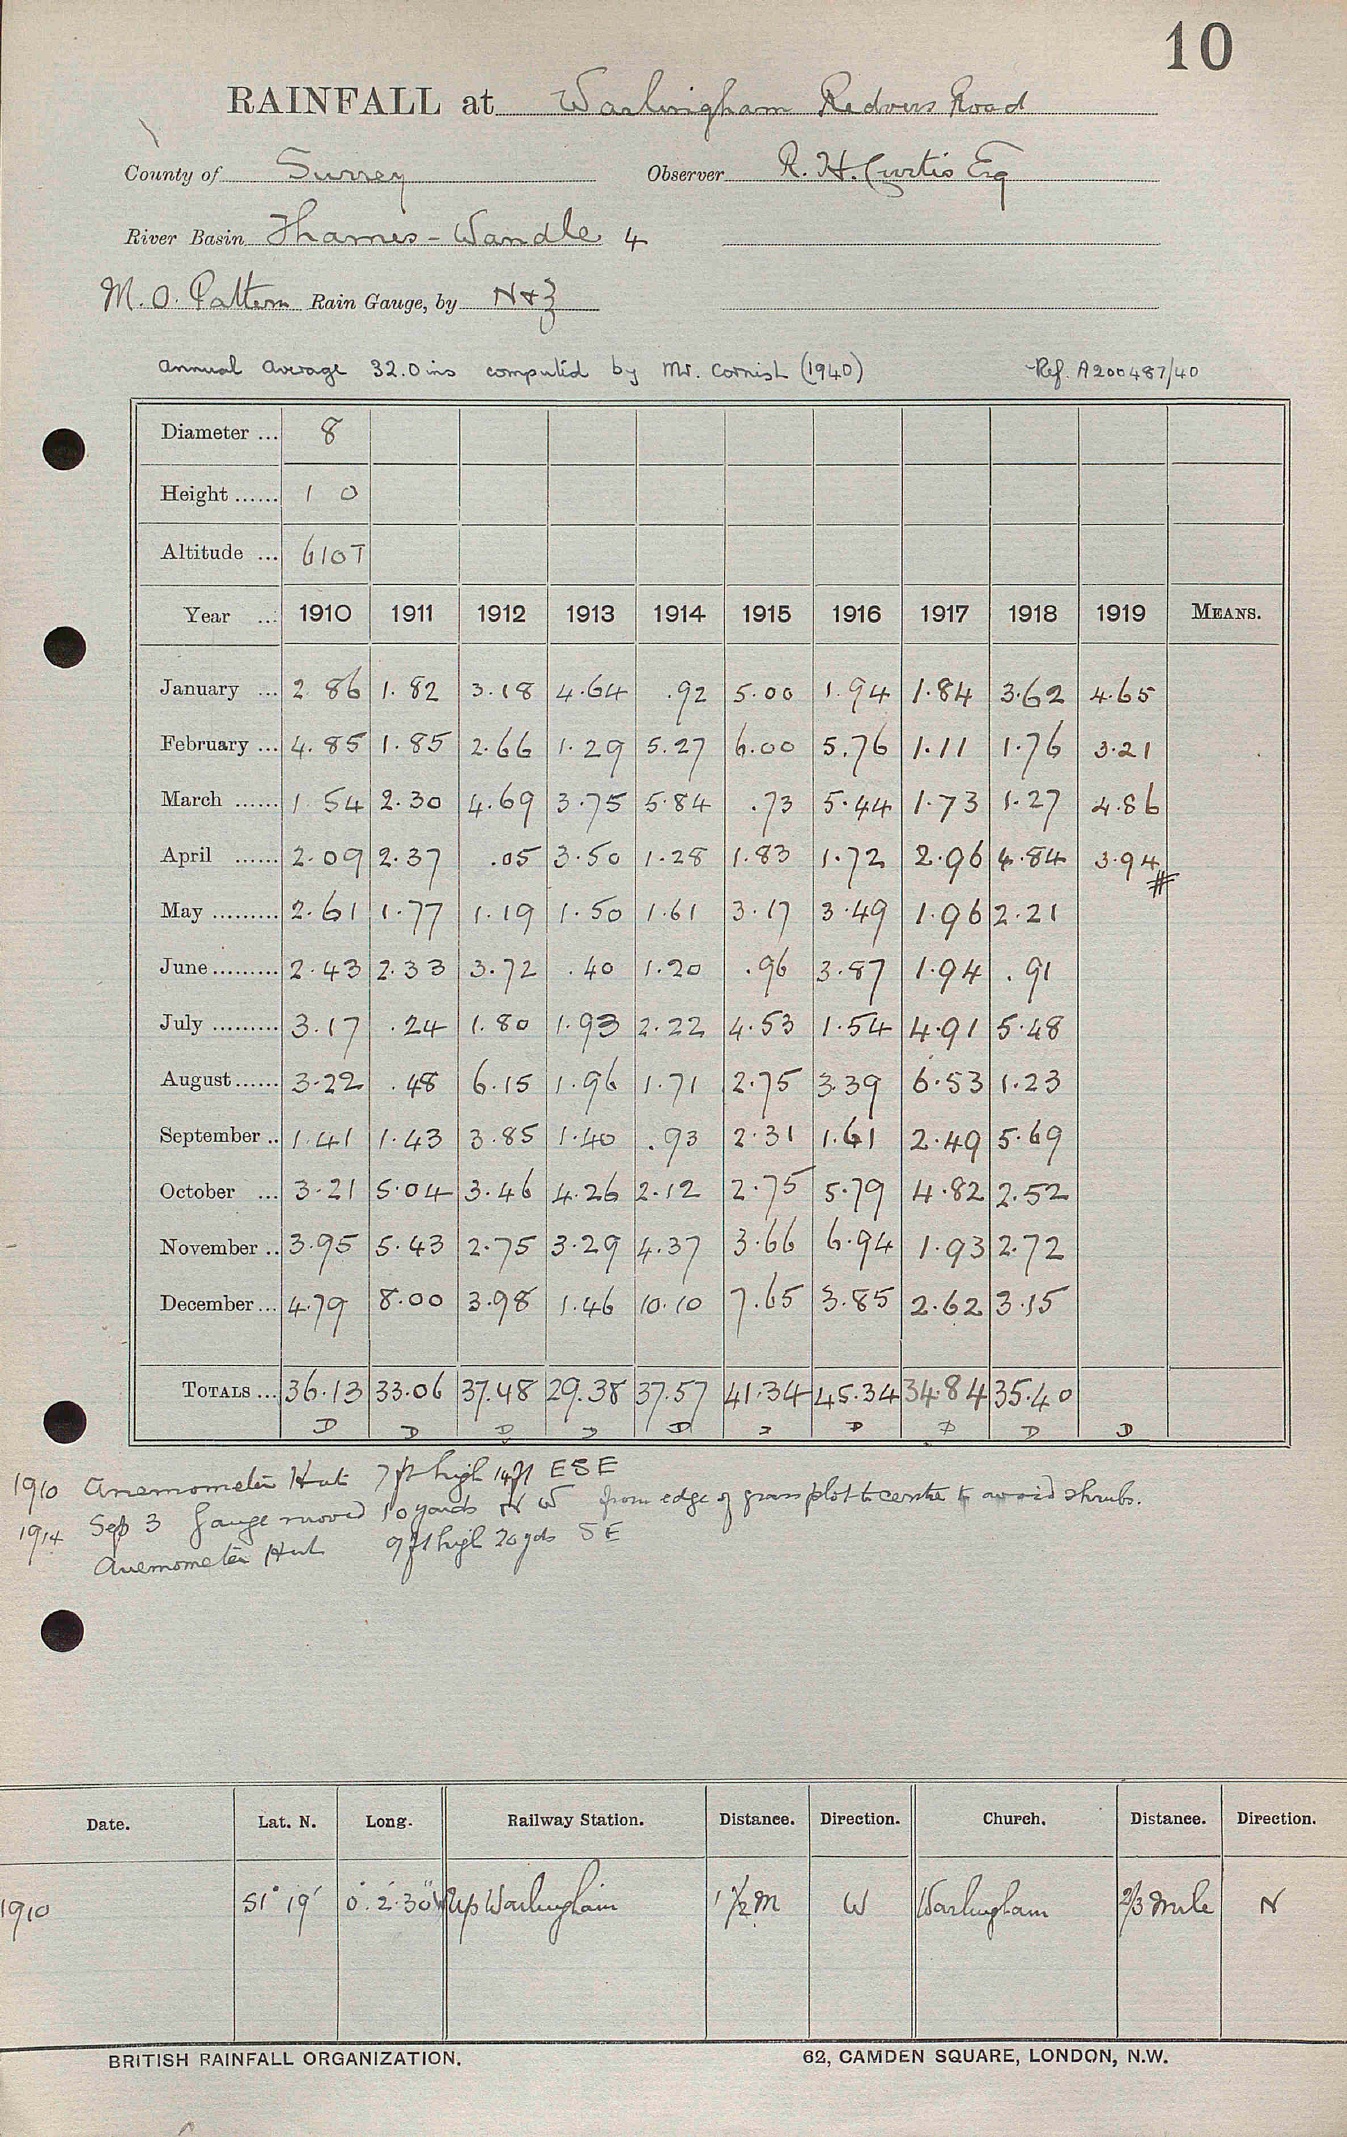 10
RAINFALL at Warlingham Redvers Road
County of Surrey Observer R. H. Curtis Esq
River Basin Thames - Wandle 4
M. O. Pattern Rain Gauge, by N & Z
Annual Average 32.0 ins computed by Mr. Cornish (1940) Ref. A200487/40
Diameter ... 8
Height ...... 1 0
Altitude ... 610 T
Year ... 1910 1911 1912 1913 1914 1915 1916 1917 1918 1919 MEANS.
January ... 2.86 1.82 3.18 4.64 .92 5.00 1.94 1.84 3.62 4.65
February ... 4.85 1.85 2.66 1.29 5.27 6.00 5.76 1.11 1.76 3.21
March ...... 1.54 2.30 4.69 3.75 5.84 .73 5.44 1.73 1.27 4.86
April ...... 2.09 2.37 .05 3.50 1.28 1.83 1.72 2.96 4.84 3.94 #
May ......... 2.61 1.77 1.19 1.50 1.61 3.17 3.49 1.96 2.21
June ......... 2.43 2.33 3.72 .40 1.20 .96 3.87 1.94 .91
July ......... 3.17 .24 1.80 1.93 2.22 4.53 1.54 4.91 5.48
August ...... 3.22 .48 6.15 1.96 1.71 2.75 3.39 6.53 1.23
September .. 1.41 1.43 3.85 1.40 .93 2.31 1.61 2.49 5.69
October ... 3.21 5.04 3.46 4.26 2.12 2.75 5.79 4.82 2.52
November .. 3.95 5.43 2.75 3.29 4.37 3.66 6.94 1.93 2.72
December ... 4.79 8.00 3.98 1.46 10.10 7.65 3.85 2.62 3.15
TOTALS ... 36.13 33.06 37.48 29.38 37.57 41.34 45.34 34.84 35.40
D D D D D D D D D D
1910 Anemometer Hut 7 ft high 14 ft ESE
1914 Sep 3 Gauge moved 10 yards N W from edge of grass plot to centre to avoid shrubs.
Anemometer Hut 9 ft high 20 yds SE
Date. Lat. N. Long. Railway Station. Distance. Direction. Church. Distance. Direction.
1910 51° 19' 0° 2' 30" W Up Warlingham 1 1/2 M W Warlingham 2/3 mile N
BRITISH RAINFALL ORGANIZATION. 62, CAMDEN SQUARE, LONDON, N.W.